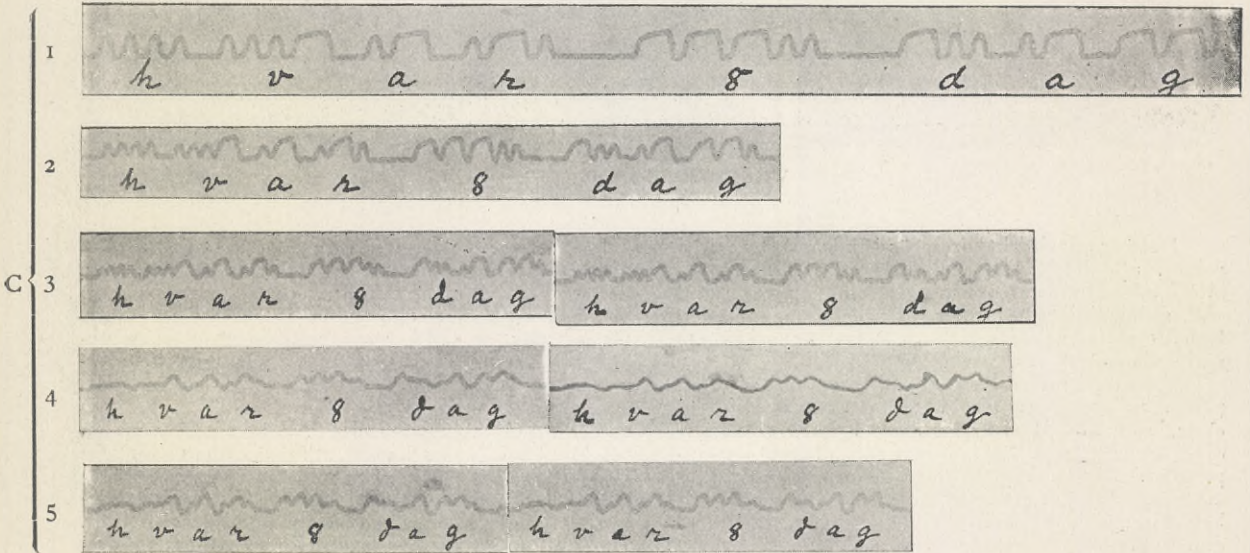 1
h v a r 8 d a g
2
h v a r 8 d a g
C 3
h v a r 8 d a g h v a r 8 d a g
4
h v a r 8 d a g h v a r 8 d a g
5
h v a r 8 d a g h v a r 8 d a g